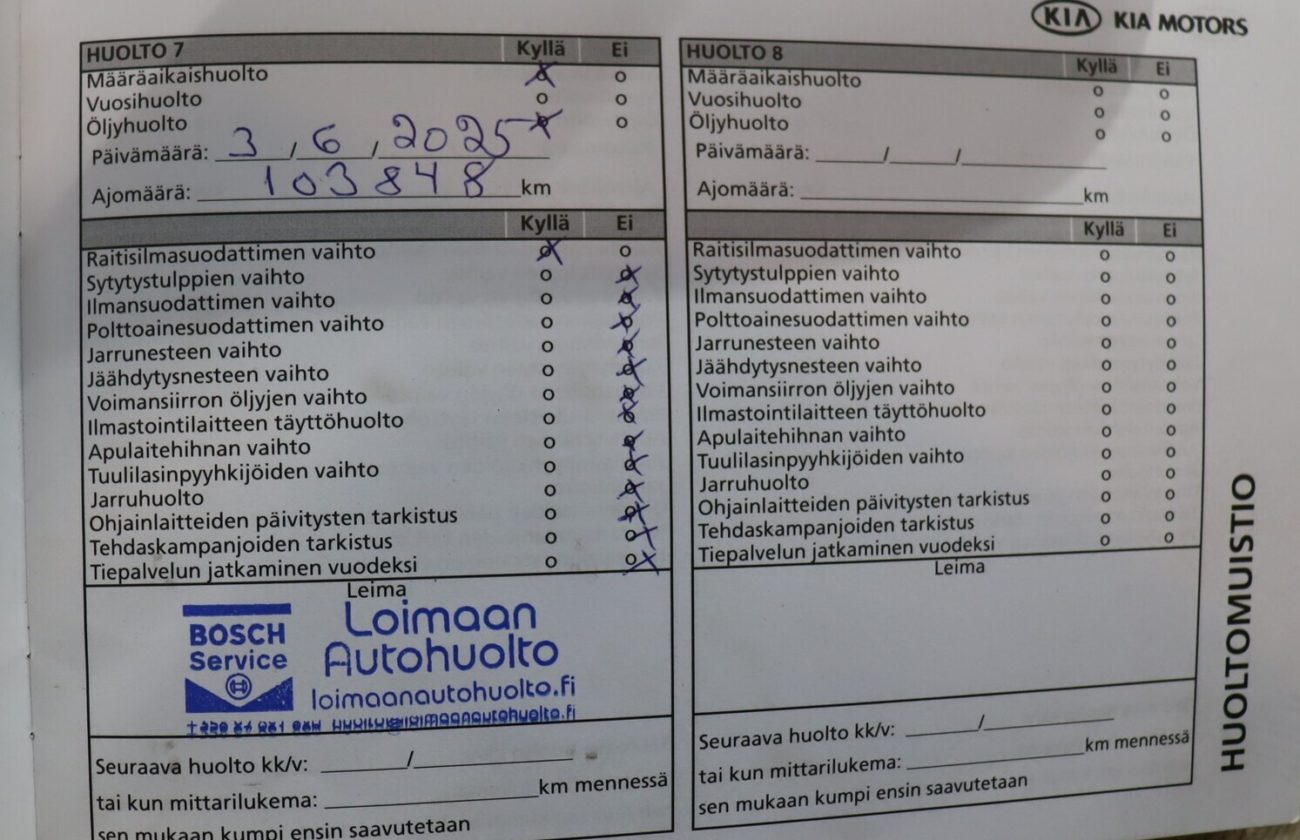 KIA KIA MOTORS
HUOLTO 7 Kyllä Ei
Määräaikaishuolto
Vuosihuolto
Öljyhuolto
Päivämäärä: 3 / 6 / 2025
Ajomäärä: 103848 km
Kyllä Ei
Raitisilmasuodattimen vaihto
Sytytystulppien vaihto
Ilmansuodattimen vaihto
Polttoainesuodattimen vaihto
Jarrunesteen vaihto
Jäähdytysnesteen vaihto
Voimansiirron öljyjen vaihto
Ilmastointilaitteen täyttöhuolto
Apulaitehihnan vaihto
Tuulilasinpyyhkijöiden vaihto
Jarruhuolto
Ohjainlaitteiden päivitysten tarkistus
Tehdaskampanjoiden tarkistus
Tiepalvelun jatkaminen vuodeksi
Leima
BOSCH
Service
Loimaan
Autohuolto
loimaanautohuolto.fi
Seuraava huolto kk/v: /
tai kun mittarilukema: km mennessä
sen mukaan kumpi ensin saavutetaan
HUOLTO 8 Kyllä Ei
Määräaikaishuolto
Vuosihuolto
Öljyhuolto
Päivämäärä: / /
Ajomäärä: km
Kyllä Ei
Raitisilmasuodattimen vaihto
Sytytystulppien vaihto
Ilmansuodattimen vaihto
Polttoainesuodattimen vaihto
Jarrunesteen vaihto
Jäähdytysnesteen vaihto
Voimansiirron öljyjen vaihto
Ilmastointilaitteen täyttöhuolto
Apulaitehihnan vaihto
Tuulilasinpyyhkijöiden vaihto
Jarruhuolto
Ohjainlaitteiden päivitysten tarkistus
Tehdaskampanjoiden tarkistus
Tiepalvelun jatkaminen vuodeksi
Leima
Seuraava huolto kk/v: /
tai kun mittarilukema: km mennessä
sen mukaan kumpi ensin saavutetaan
HUOLTOMUISTIO